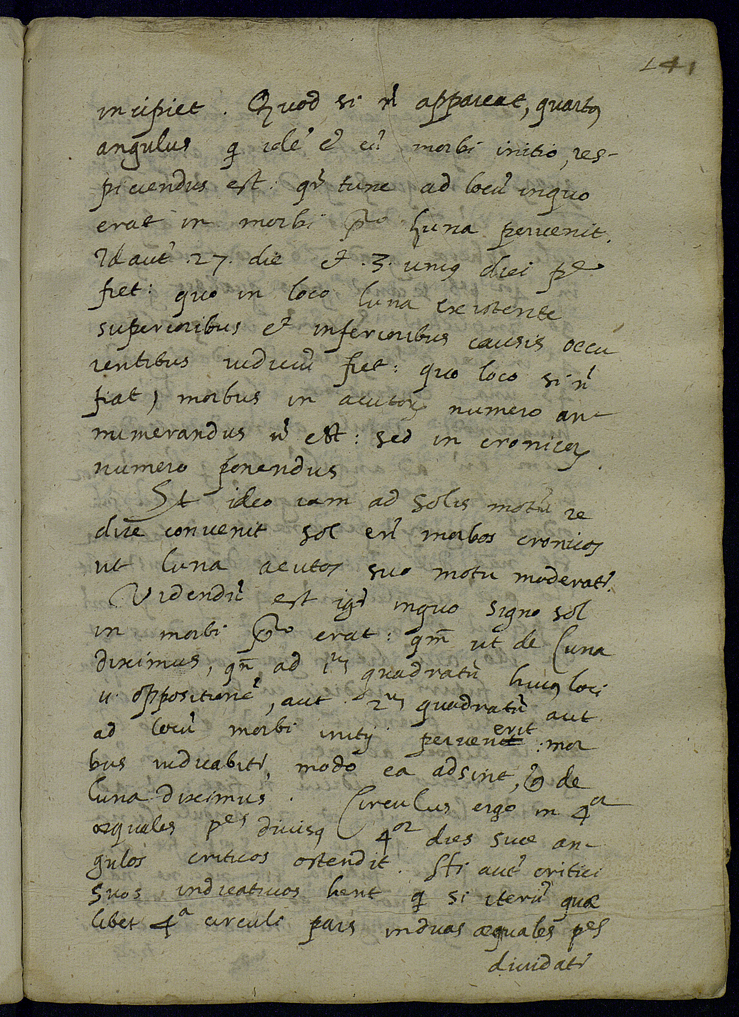 141
incipiet. Quod si n̄ appareat, quartus
angulus q̄ idē ē cū morbi initio, res-
piciendus est: qn̄ tunc ad locū inquo
erat in morbi pᵒ Luna pervenit.
Id aut̄ .27. die et .3. unius diei pᵉ
fiet: quo in loco luna existente
superioribus et inferioribus causis occu
rentibus iudiciū fiet: quo loco si n̄
fiat) morbus in acutorꝝ numero an-
numerandus n̄ est: sed in cronicorꝝ
numero ponendus
Et ideo iam ad solis motū re
dire convenit sol en̄ morbos cronicos
ut luna acutos suo motu moderat̄.
Videndū est igr̄ inquo signo sol
in morbi pᵒ erat: qm̄ ut de Luna
diximus, qn̄ ad 1ᵘˢ quadratū huius loci
oppositionē, aut 2ᵘˢ quadratū aut
ad locū morbi initij pervenet erit: mor
bus iudicabit̄, modo ea adsint, q̄ de
luna diximus. Circulus ergo in 4ᵒʳ
æquales pᵉˢ divisus 4ᵒʳ dies suæ an-
gulos criticos ostendit. Hi aut̄ critici
suos indicativos hent q̄ si iterū quæ
libet 4ᵃ circuli pars induas æquales pᵉˢ
dividat̄